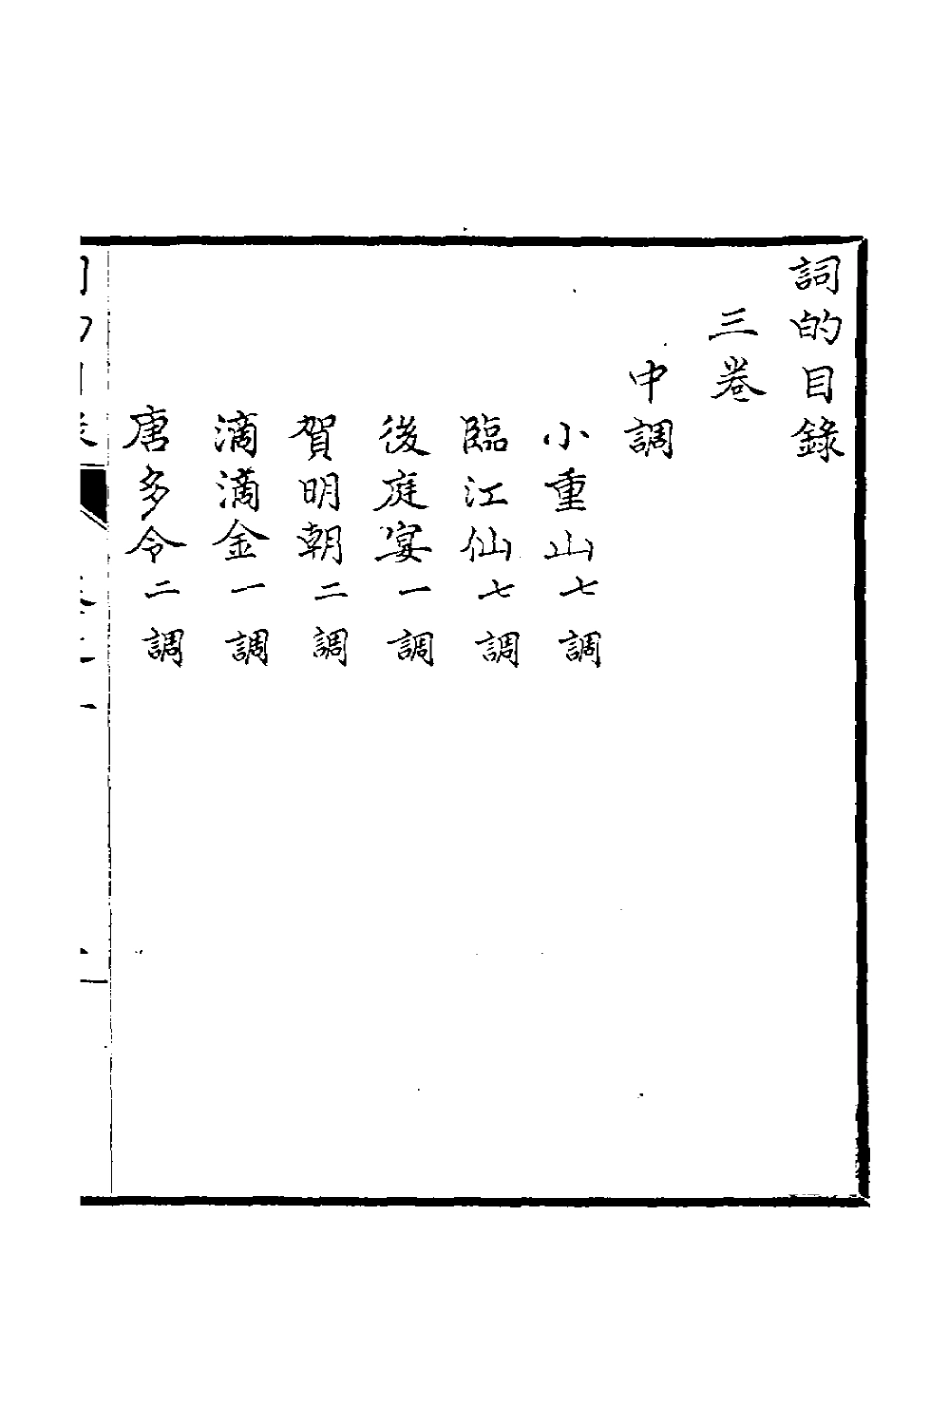 詞的目錄
三卷
中調
小重山七調
臨江仙七調
後庭宴一調
賀明朝二調
滴滴金一調
唐多令二調